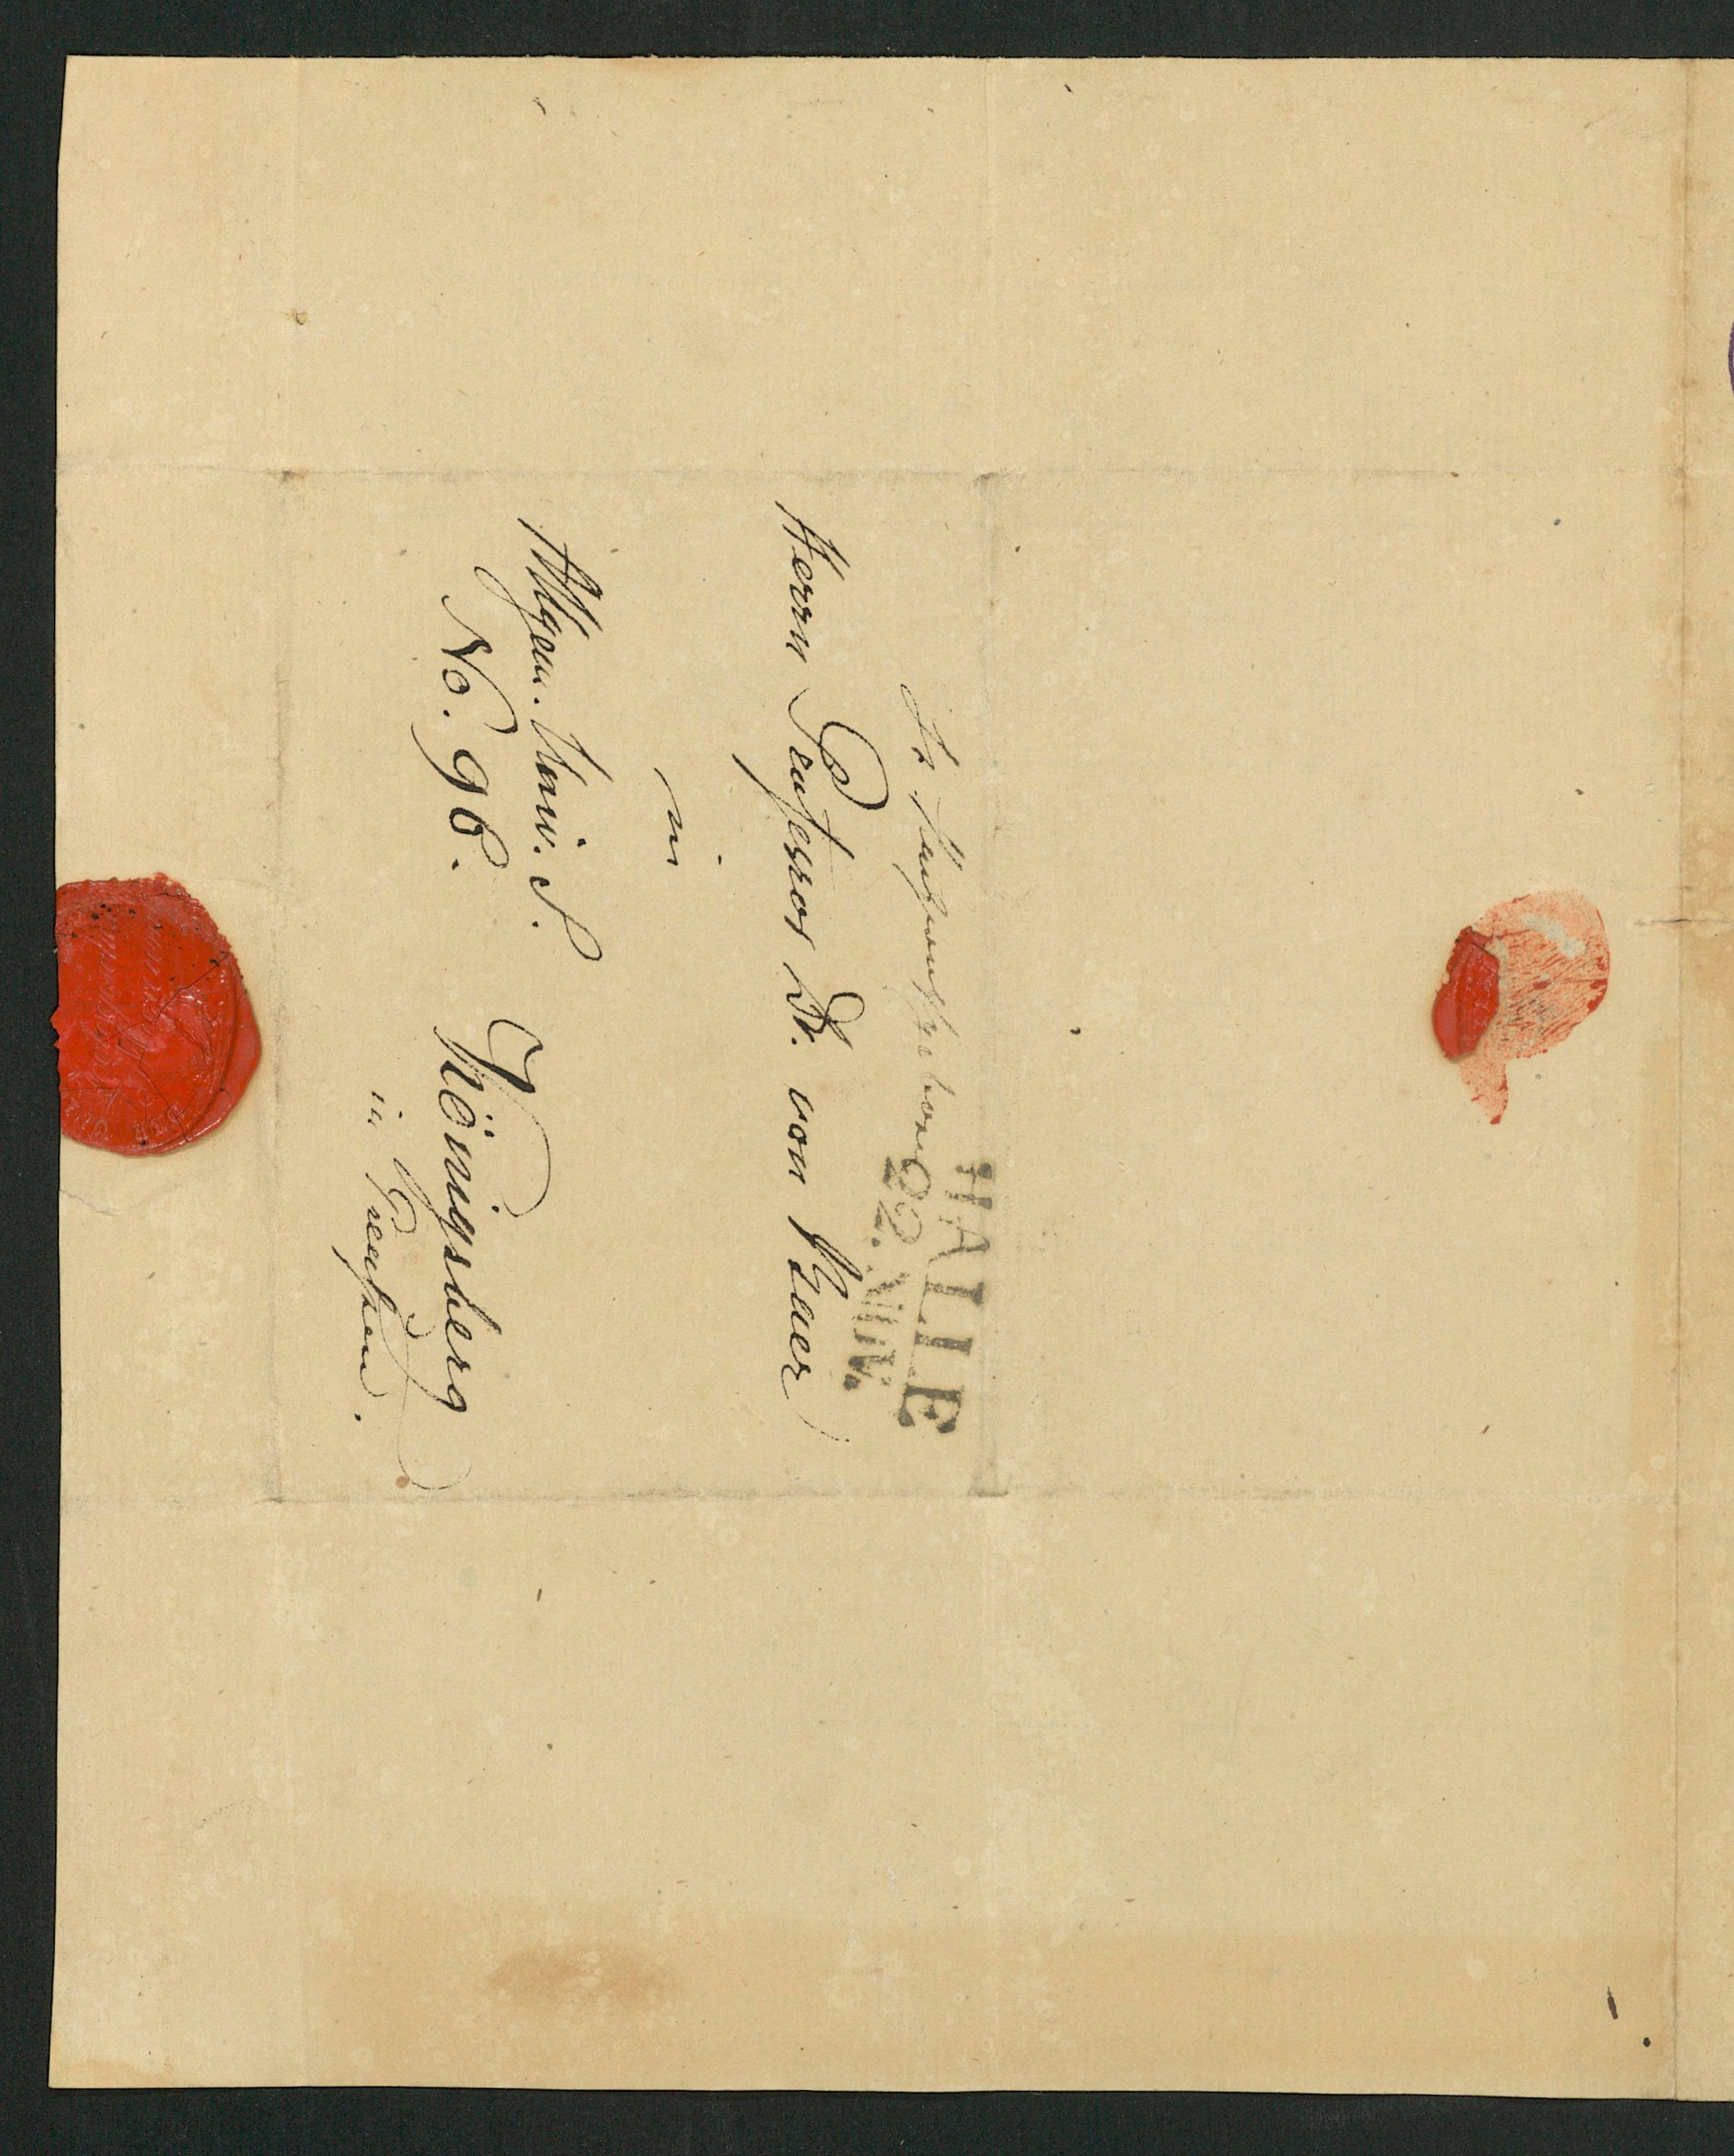 HALLE
22. NOV.
Herrn Professor Dr. von Baer
in
Königsberg
in Preußen.
Allgem. Univ. S.
No. 96.